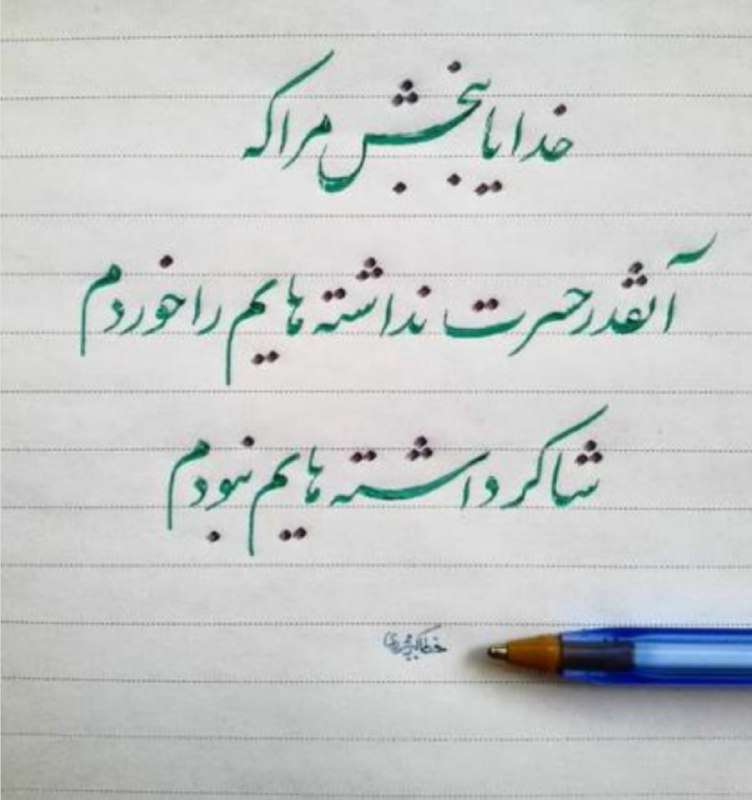 خدایا ببخش مرا که
آنقدر حسرت نداشته هایم را خوردم
شاکر داشته هایم نبودم